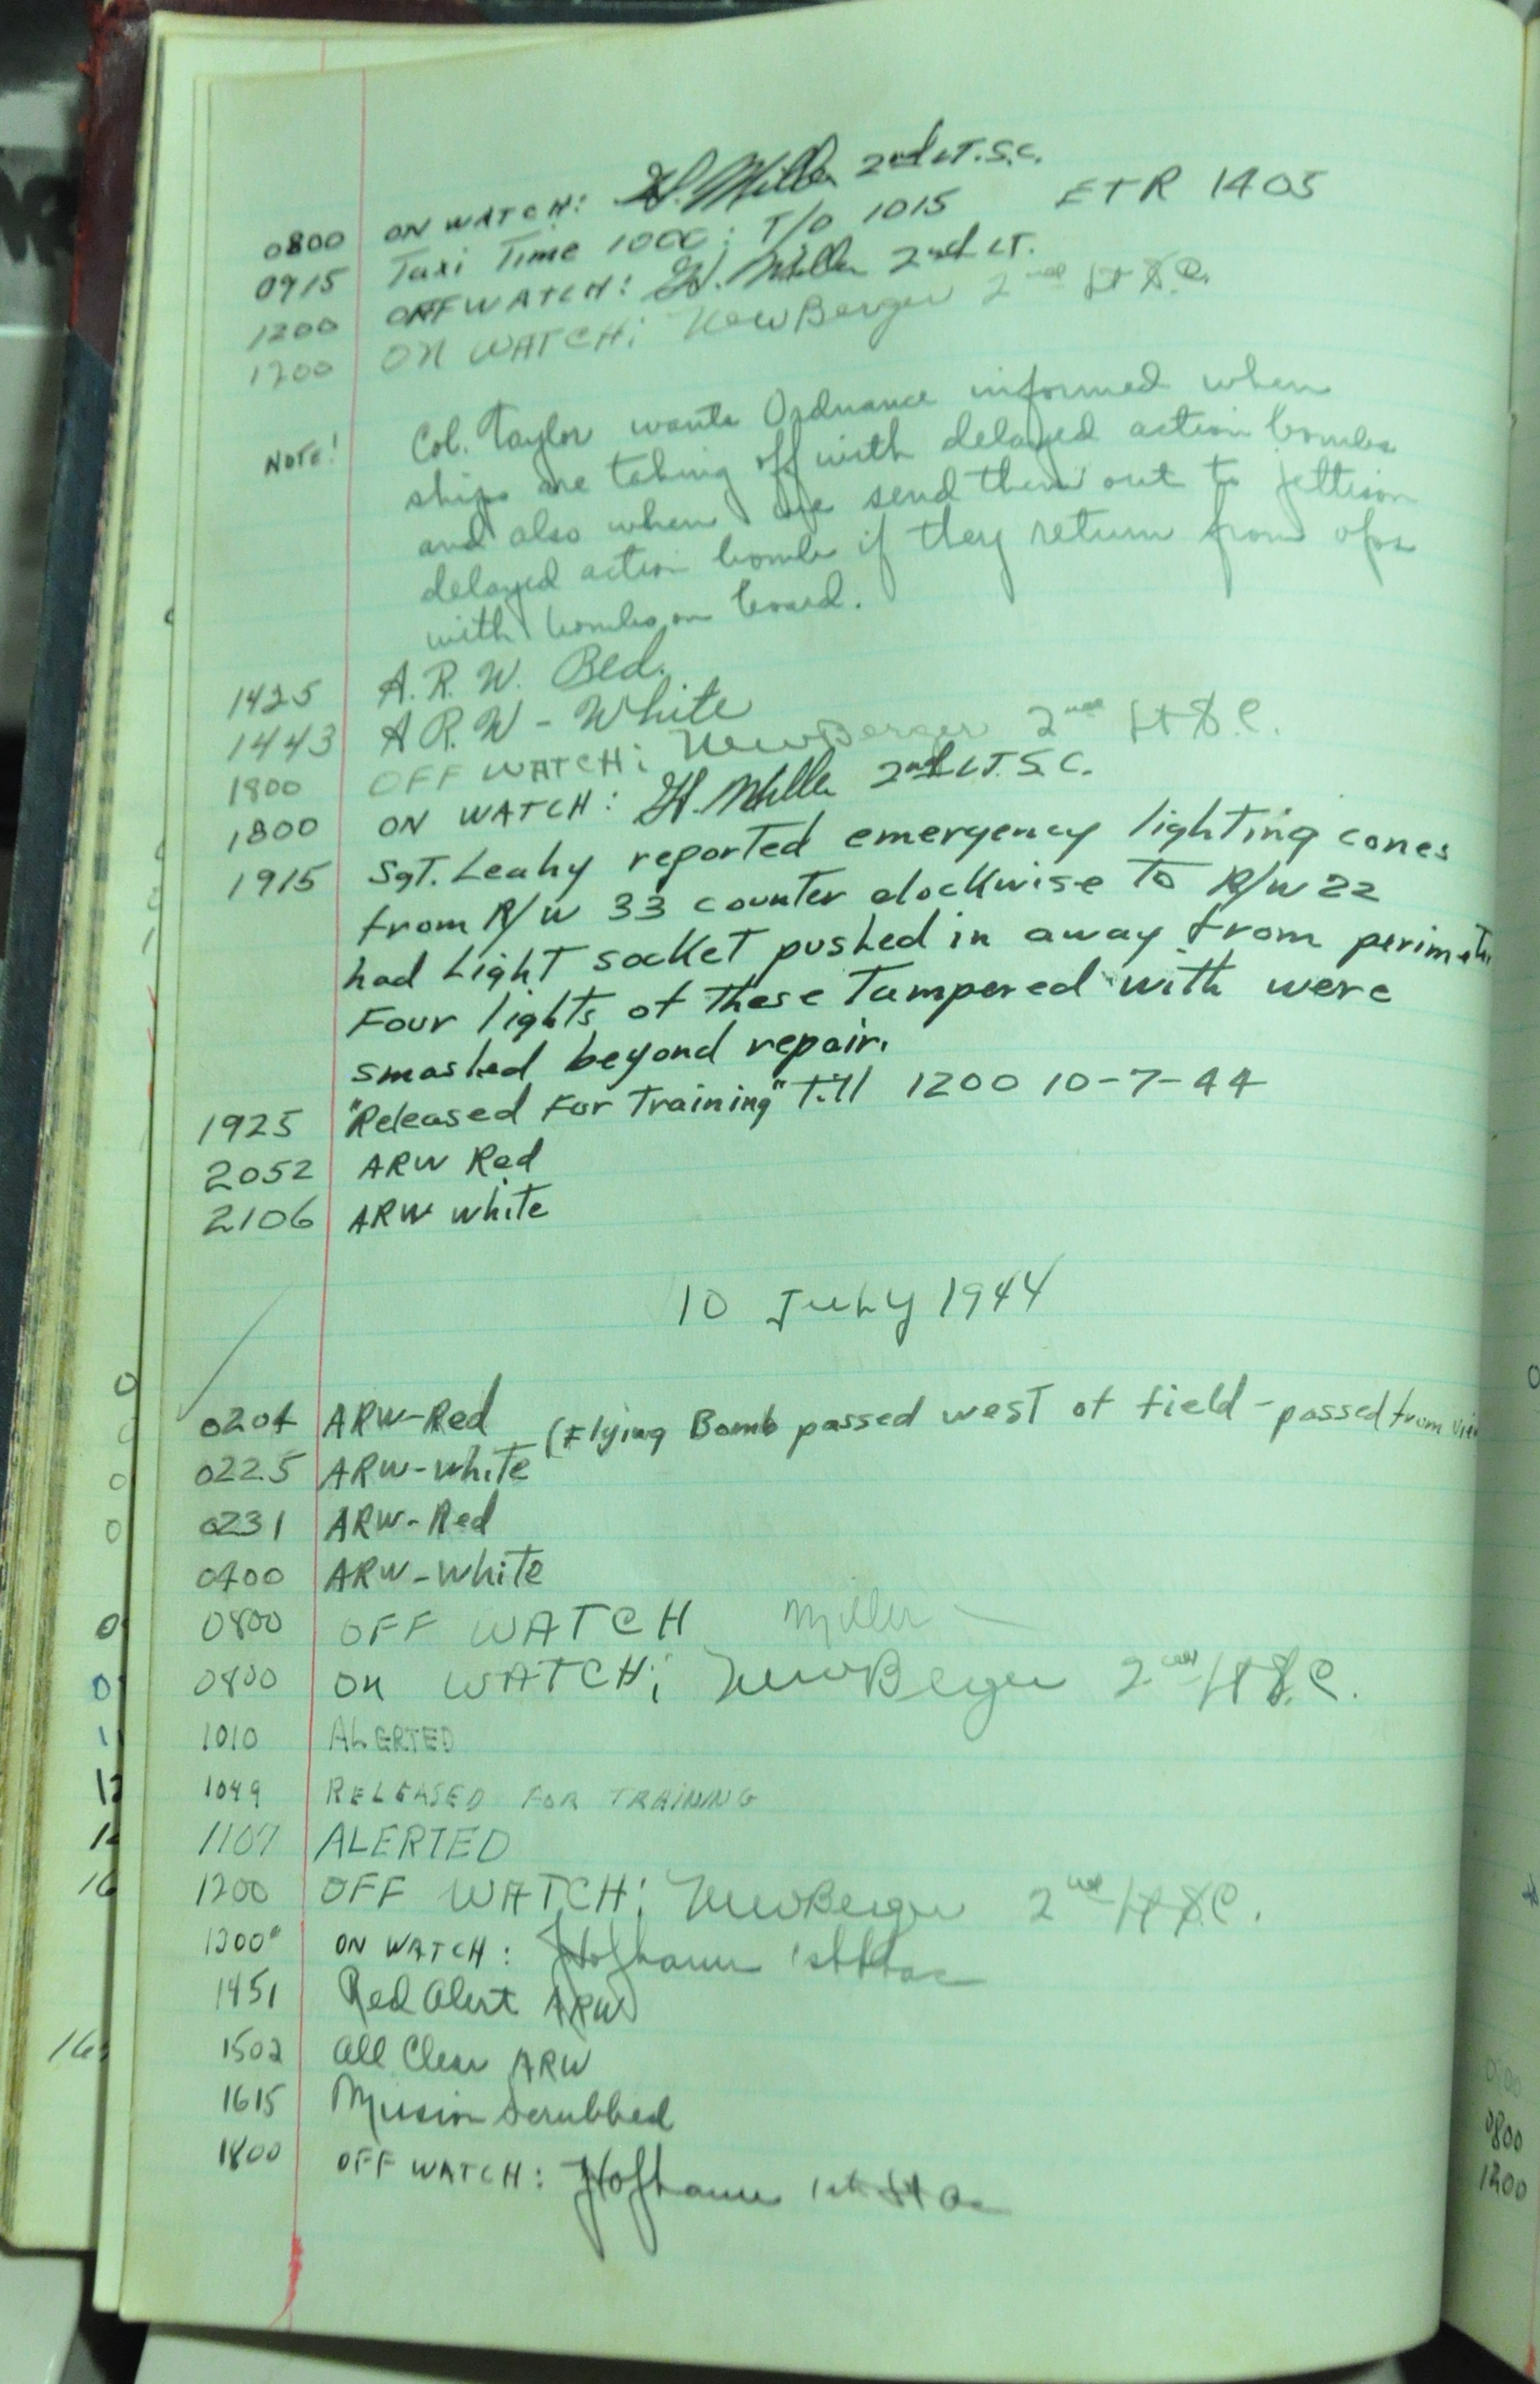 0800 ON WATCH: H. Miller 2nd LT. S.C.
0915 Taxi Time 1000; T/O 1015 ETR 1405
1200 OFF WATCH: H. Miller 2nd LT.
1200 ON WATCH: NewBerger 2nd Lt S.C.
NOTE! Col. Taylor wants Ordnance informed when
ships are taking off with delayed action bombs
and also when we send them out to jettison
delayed action bombs if they return from ops
with bombs on board.
1425 A.R.W. Red.
1443 A.R.W - White
1800 OFF WATCH: NewBerger 2nd Lt S.C.
1800 ON WATCH: H. Miller 2nd LT. S.C.
1915 Sgt. Leahy reported emergency lighting cones
from R/W 33 counter clockwise to R/W 22
had Light socket pushed in away from
Four lights of these Tampered with were
smashed beyond repair.
1925 "Released For Training" Till 1200 10-7-44
2052 ARW Red
2106 ARW white
10 JULY 1944
0204 ARW-Red (Flying Bomb passed west of field - passed from
0225 ARW-white
0231 ARW-Red
0400 ARW-white
0800 OFF WATCH Miller
0800 ON WATCH: NewBerger 2nd Lt S.C.
1010 ALERTED
1049 RELEASED FOR TRAINING
1107 ALERTED
1200 OFF WATCH: NewBerger 2nd Lt S.C.
1200 ON WATCH: 1st Lt
1451 Red Alert ARW
1502 All Clear ARW
1615 Mission Scrubbed
1800 OFF WATCH: 1st Lt